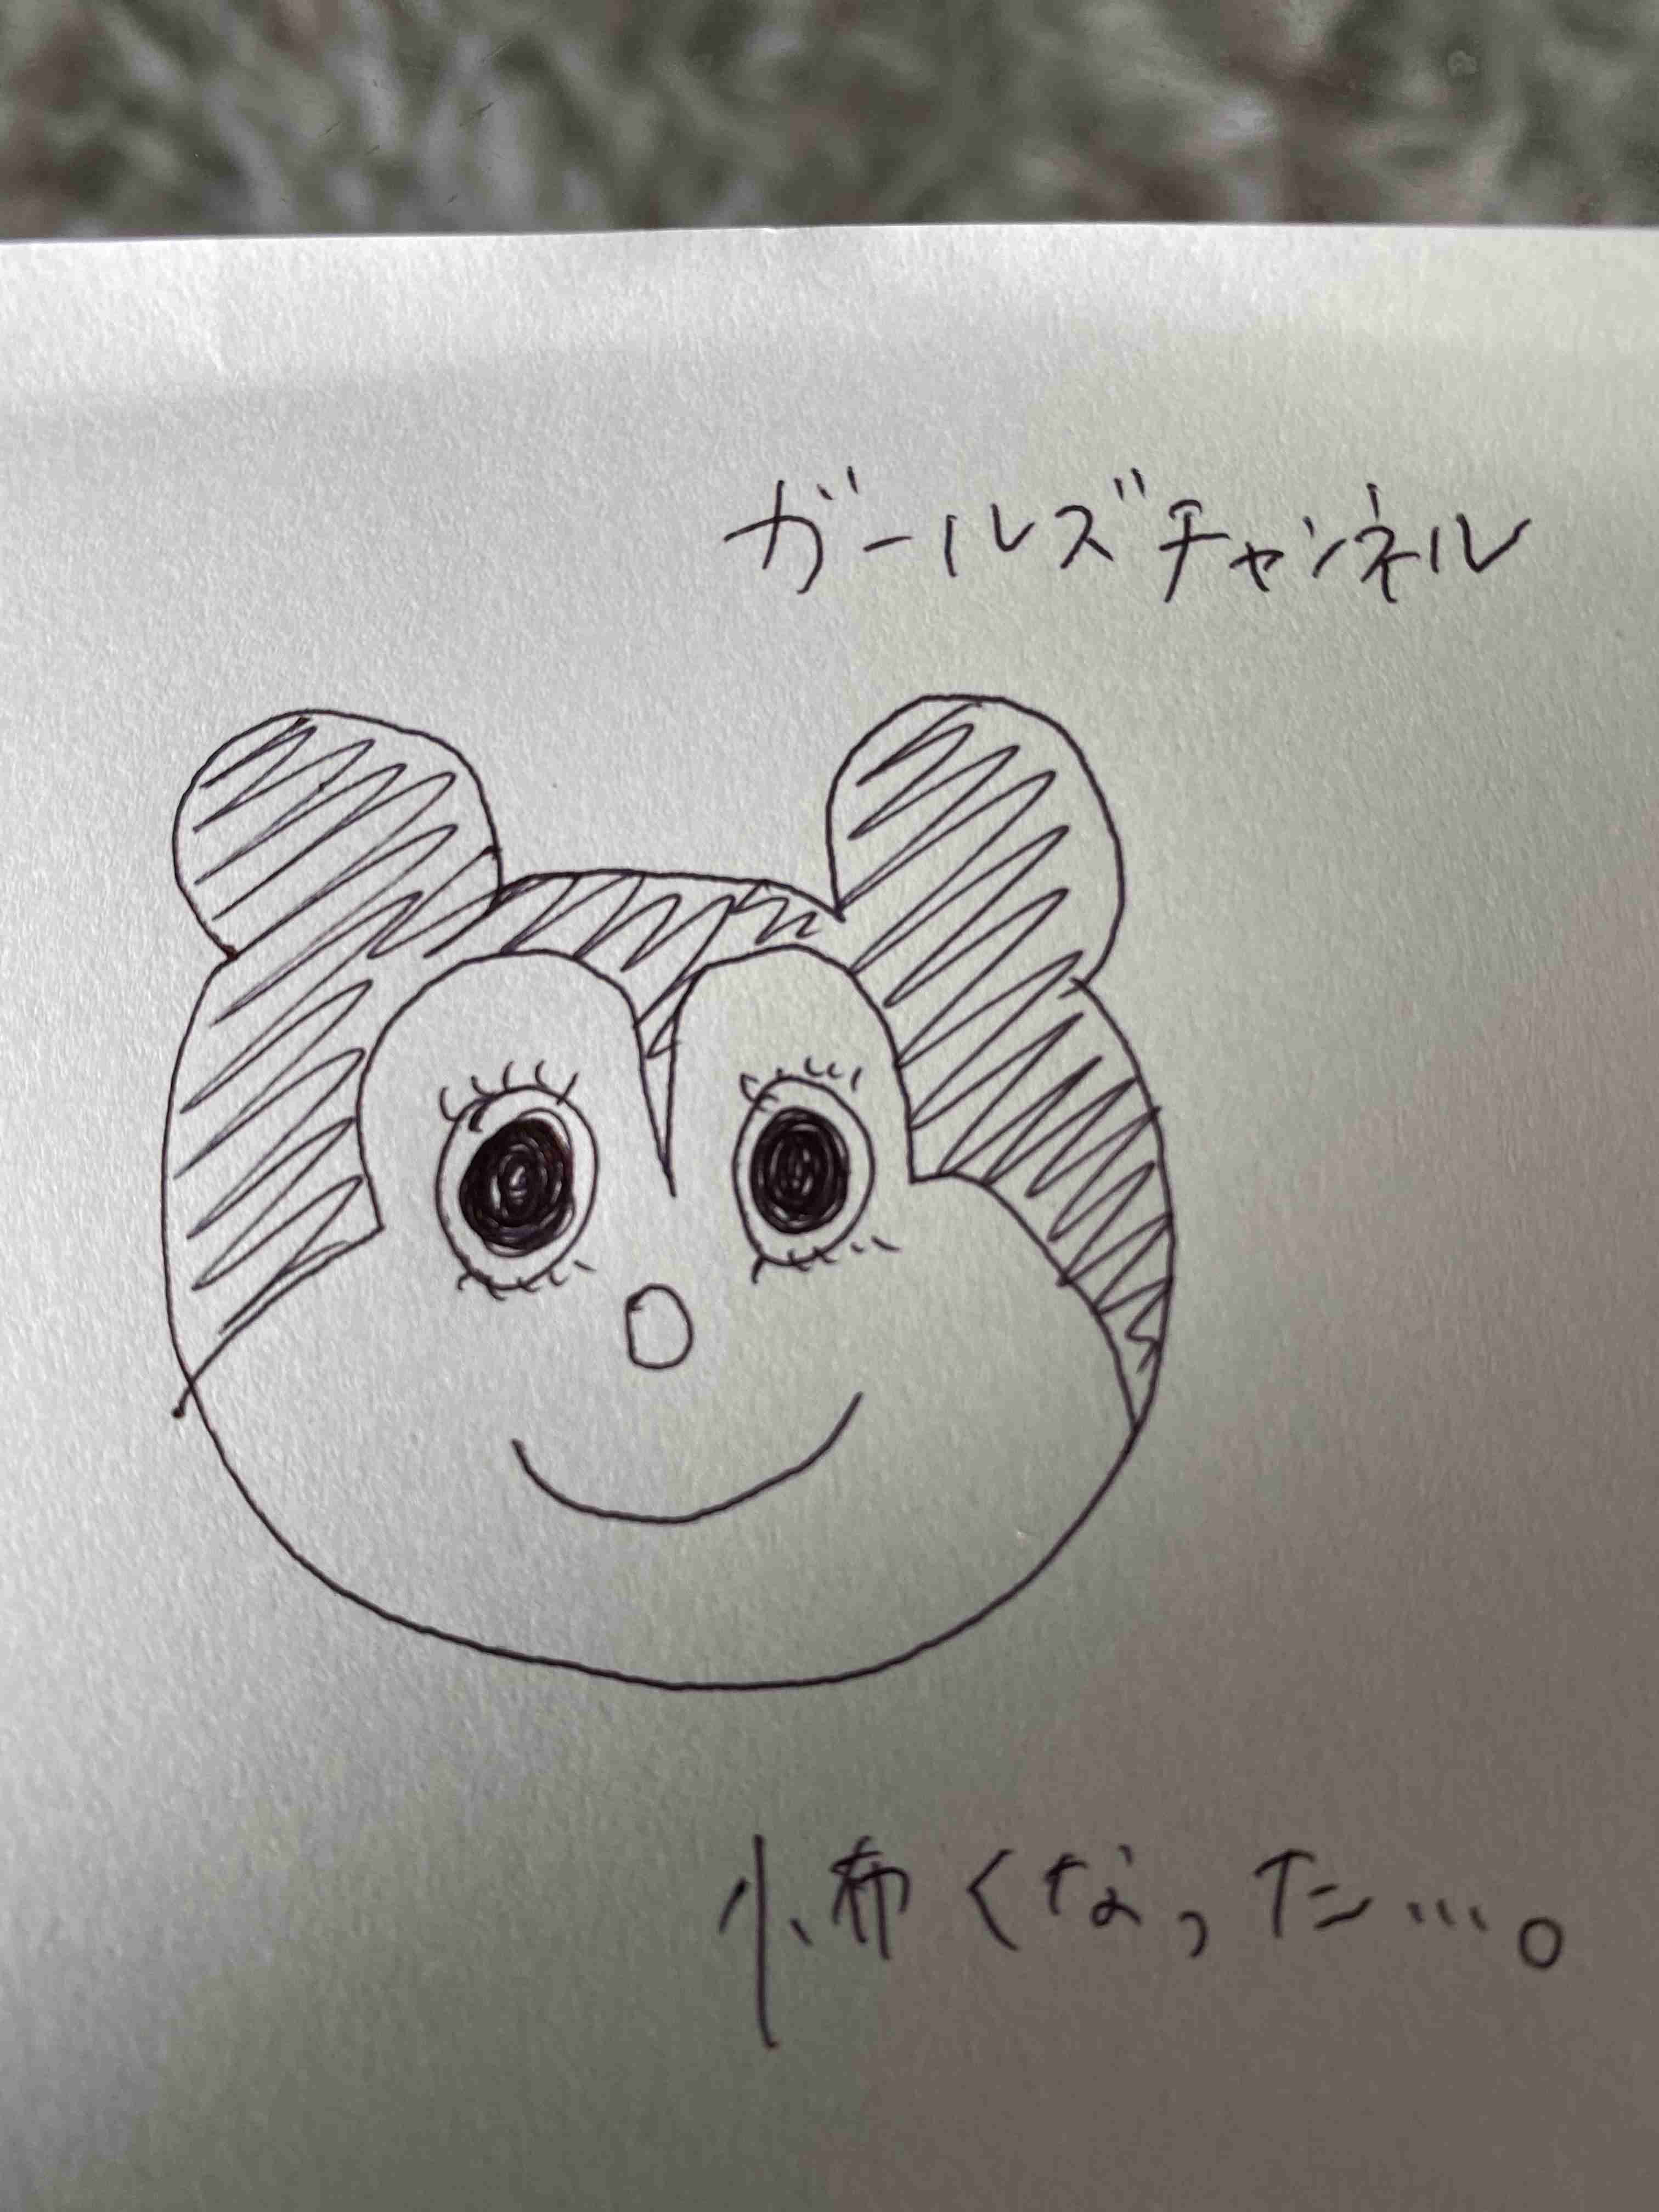 ガールズチャンネル
怖くなった…。